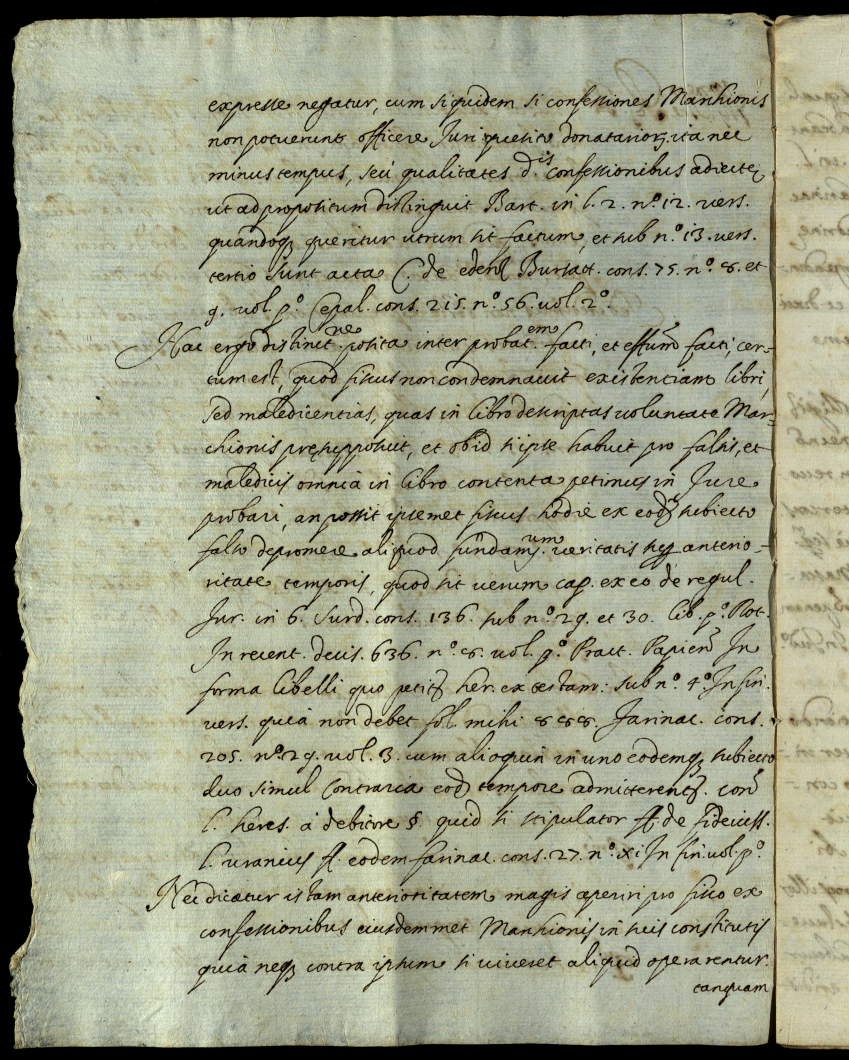 expresse negatur, cum siquidem si confessiones Marchionis
non potuerunt officere Juri quesito donatarioꝝ, ita nec
minus tempus, seu qualitates d.is confessionibus adiectę
ut ad propositum distinguit Bart. in l. 2. n.º 12. vers.
quandoq queritur utrum sit factum, et sub n.º 13. vers.
tertio sunt acta C. de edend Bursatt. cons. 75. n.º 8. et
9. vol. p.º Cepal. cons. 215. n.º 56. vol. 2.º
Hac ergo distinct.ne posita inter probat.em facti, et effum facti, cer-
tum est, quod fiscus non condemnavit existentiam libri,
sed maledicentias, quas in libro descriptas voluntate Mar-
chionis pręsupposuit, et ob id si ipse habuit pro falsis, et
maledicis omnia in libro contenta petimus in Jure
probari, an possit ipsemet fiscus hodie ex eod subiecto
falso depromere aliquod fundam.um veritatis super anterio-
ritate temporis, quod sit verum cap. ex eo de regul.
Jur. in 6. Surd. cons. 136. sub n.º 29. et 30. lib. p.º Rot.
In recent. decis. 636. n.º 8. vol. p.º Pract. Papien In
forma libelli quo petit her. ex testam: sub n.º 4.º In fin.
vers. quia non debet fol. mihi 888. Farinac. cons.
205. n.º 29. vol. 3. cum alioquin in uno eodemq subiecto
duo simul contraria eod tempore admitterent. con
l. heres. à debitore § quid si stipulator ff de fideiuss.
l. uranius ff. eodem farinac. cons. 27. n.º xi In fin. vol. p.º
Nec dicatur istam anterioritatem magis aperiri pro fisco ex
confessionibus eiusdemmet Marchionis in suis constitutis
quia neq contra ipsum si viveret aliquid operarentur
tanquam